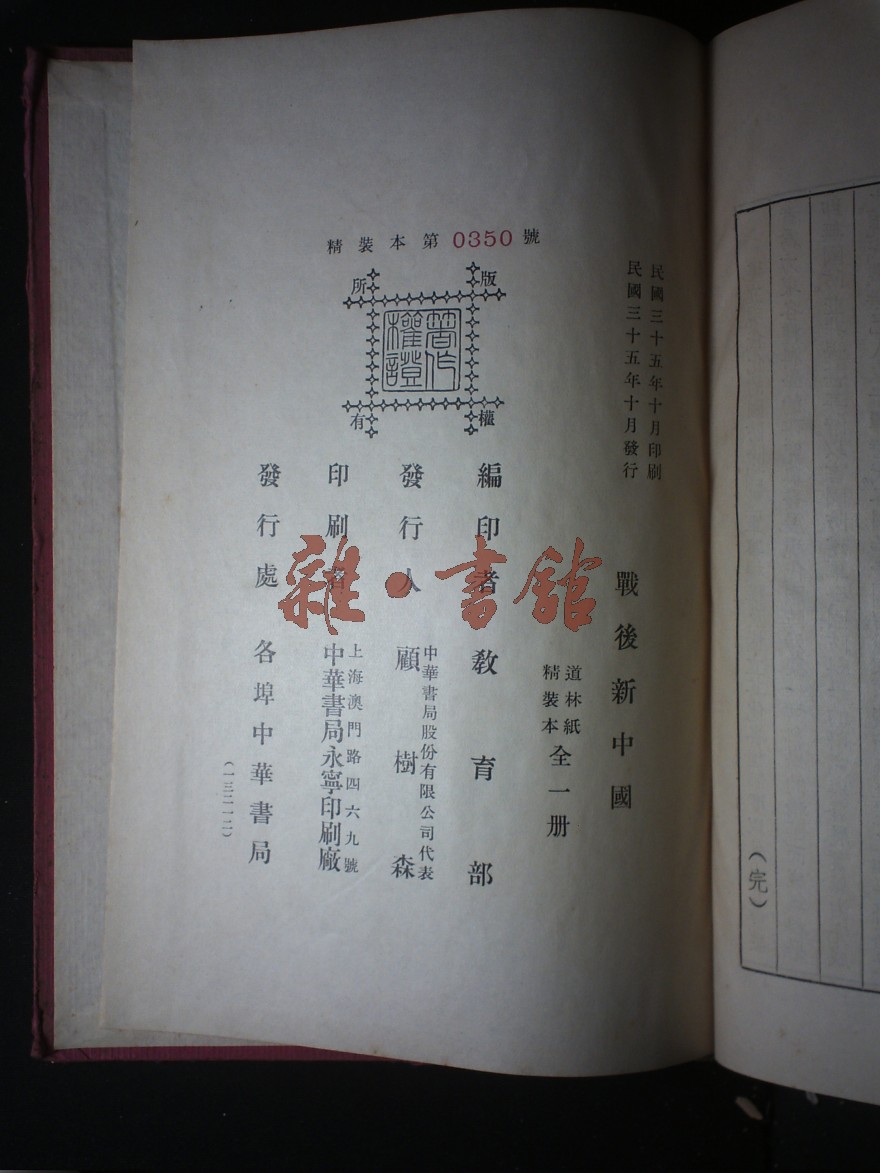 精裝本第0350號
版權所有
著作權證
民國三十五年十月印刷
民國三十五年十月發行
戰後新中國
道林紙
精裝本
全一册
編印者教育部
中華書局股份有限公司代表
發行人顧樹森
上海澳門路四六九號
印刷者中華書局永寧印刷廠
發行處各埠中華書局
(一三二一二)
(完)
雜·書館